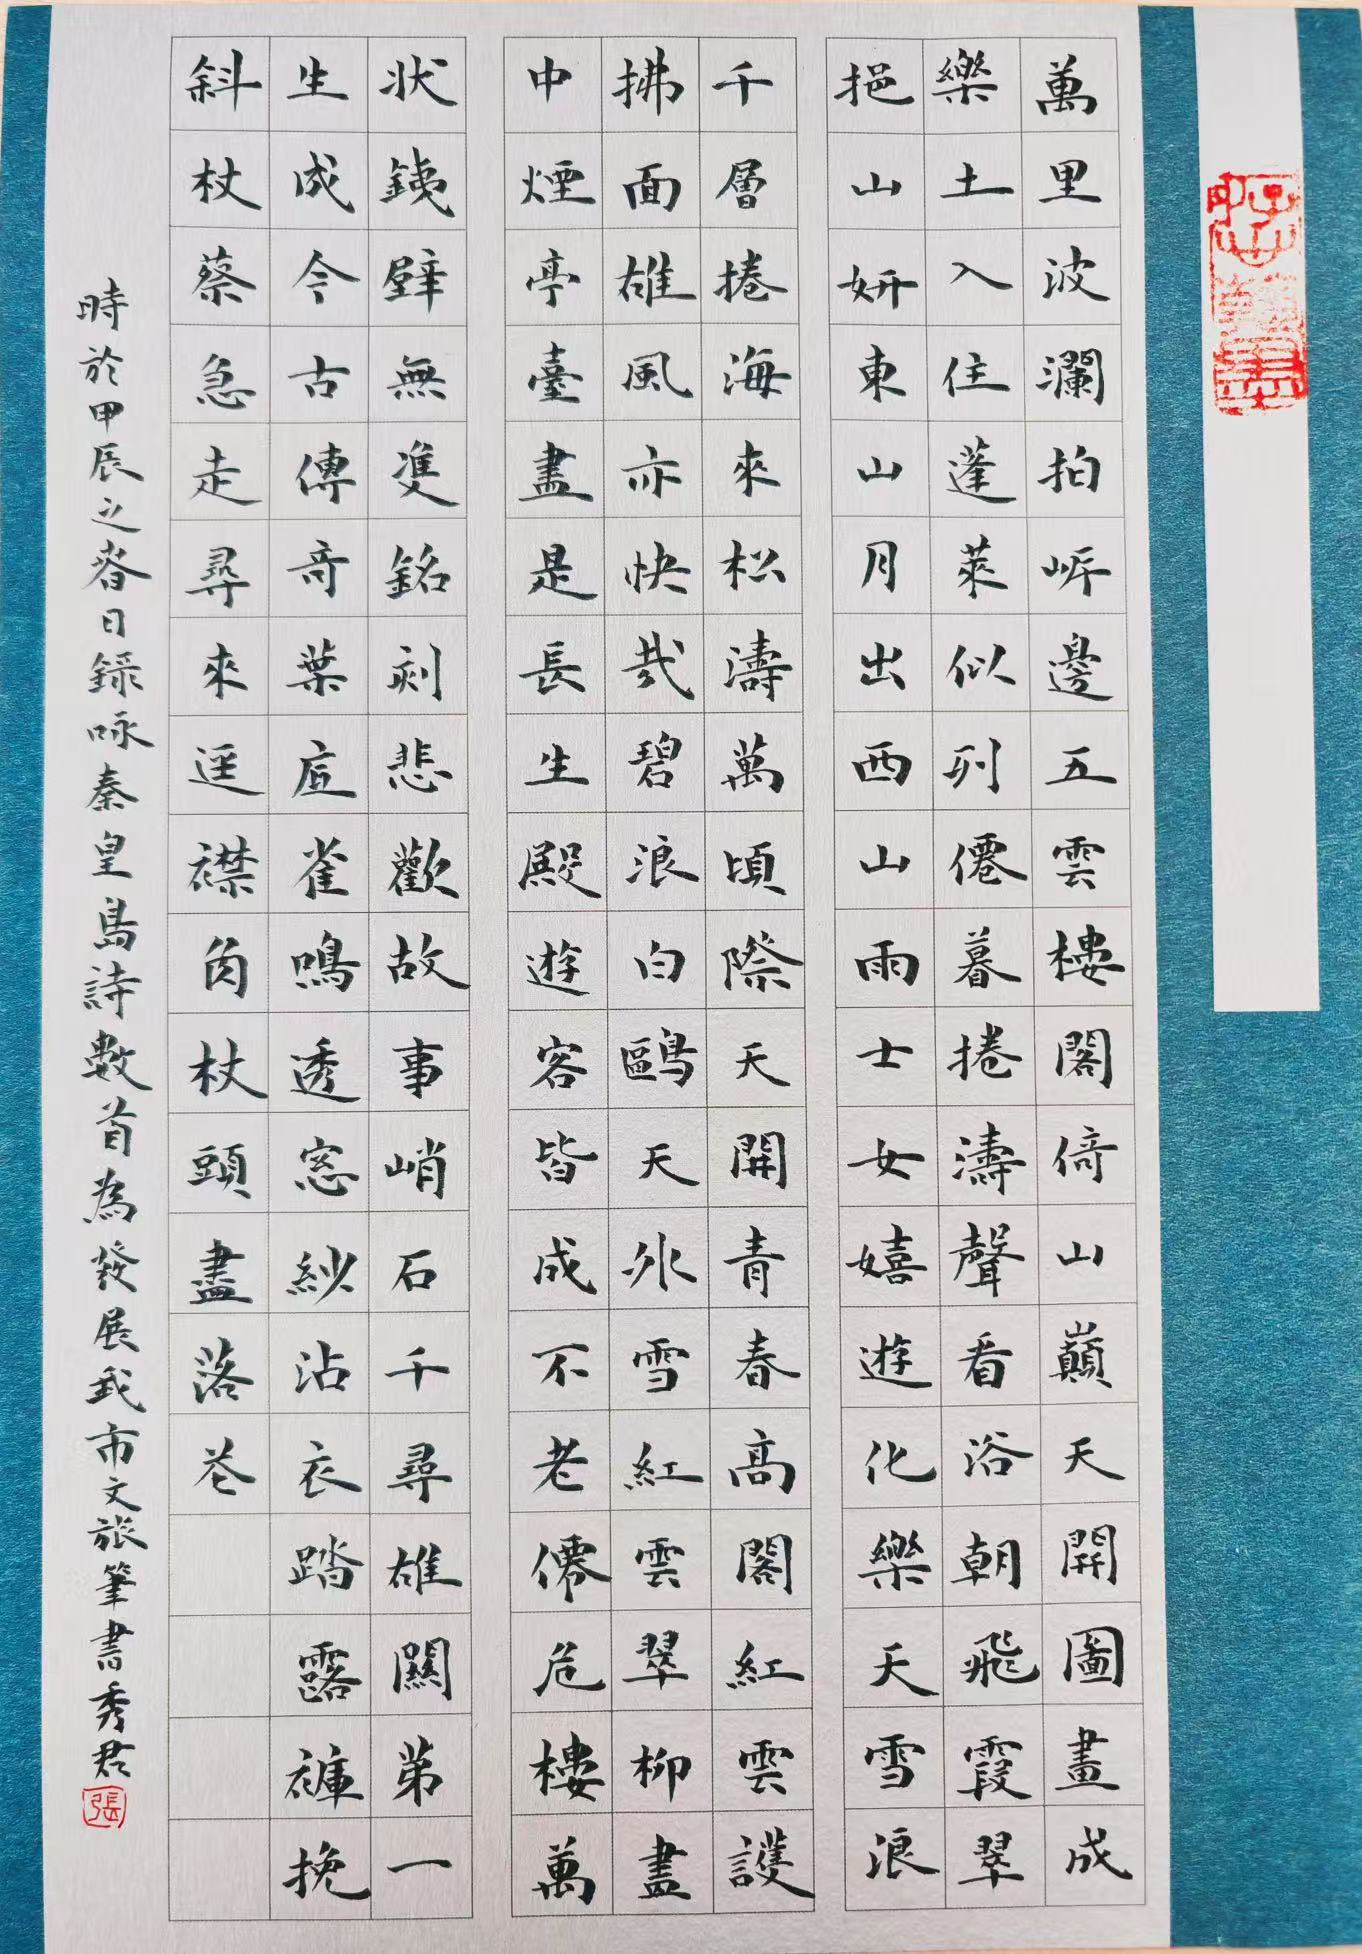 萬里波瀾拍岸邊五雲樓閣倚山巔天開圖畫成
樂土入住蓬萊似列僊暮捲濤聲看浴朝飛霞翠
挹山妍東山月出西山雨士女嬉遊化樂天雪浪
千層捲海來松濤萬頃際天開青春高閣紅雲護
拂面雄風亦快哉碧浪白鷗天外雪紅雲翠柳畫
中煙亭臺盡是長生殿遊客皆成不老僊危樓萬
狀銕壁無雙銘刻悲歡故事峭石千尋雄關第一
生成今古傳奇葉底雀鳴透窓紗沾衣踏露褲挽
斜杖蔡急走尋來逕襟角杖頭盡落花
時於甲辰之春日録咏秦皇島詩數首為發展我市文旅筆書秀君
張